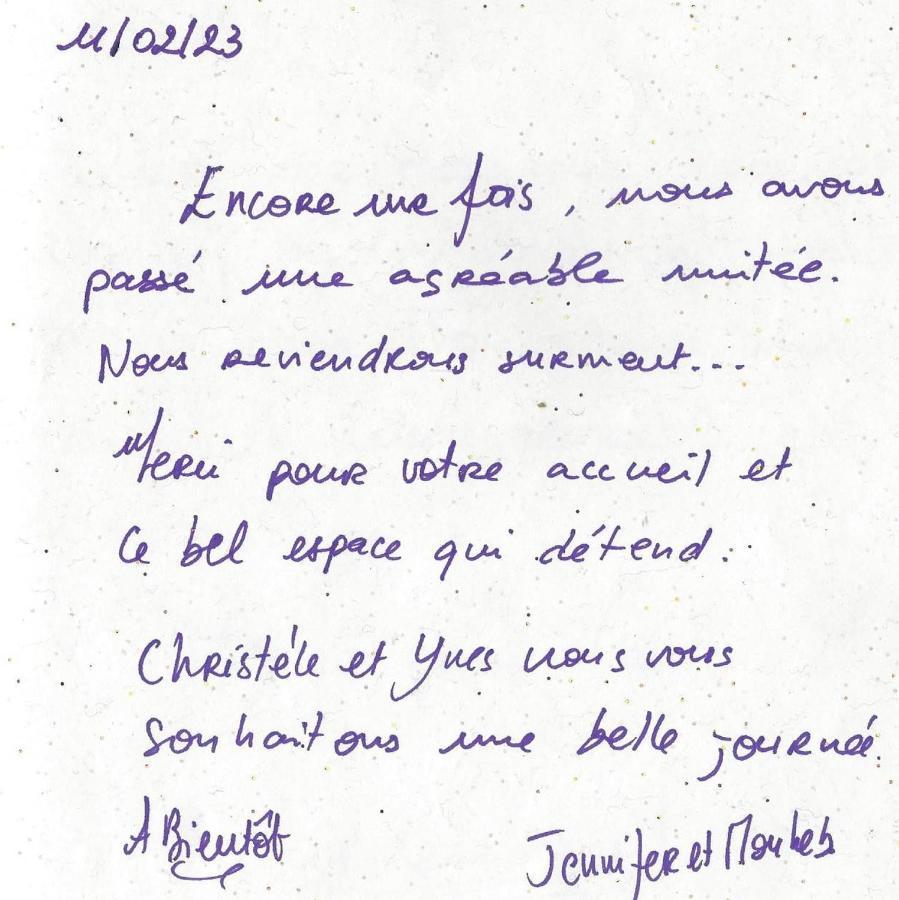 11/02/23
Encore une fois, nous avons
passé une agréable nuitée.
Nous reviendrons surement...
Merci pour votre accueil et
Ce bel espace qui détend.
Christéle et Yves nous vous
souhaitons une belle journée.
A Bientôt
Jennifer et